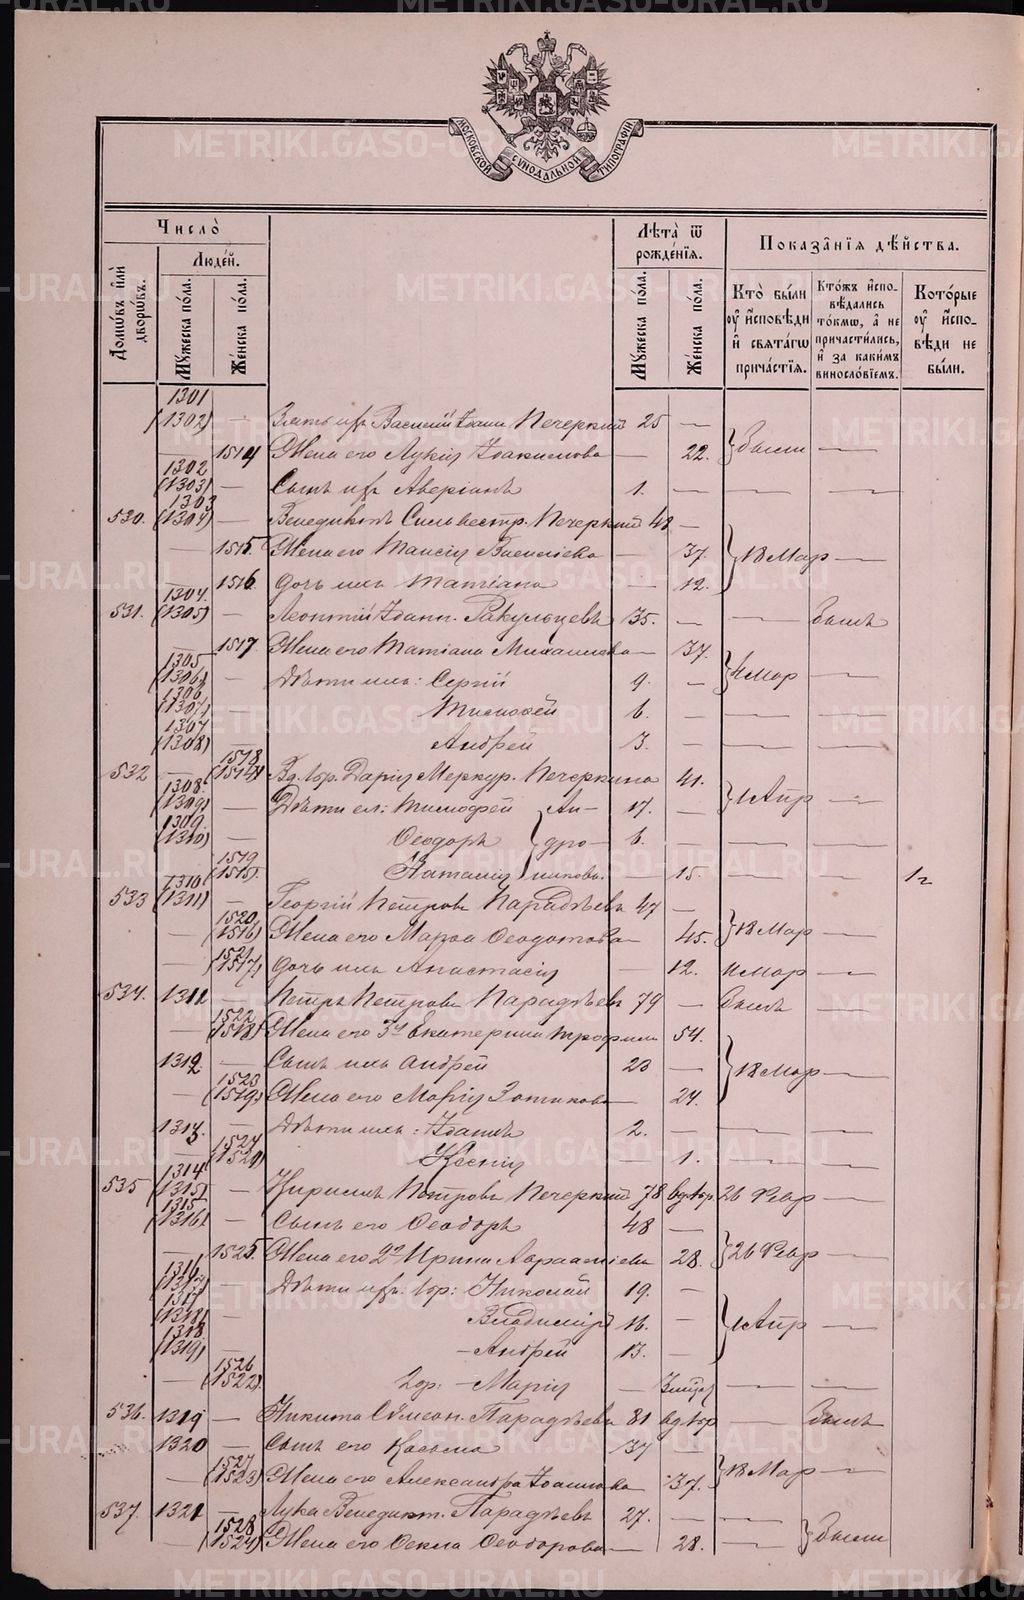 МОСКОВСКОЙ СѴНОДАЛЬНОЙ ТИПОГРАФІИ
Число̀
Людѐй.
Домѡвъ и҆лѝ дворѡ́въ.
Мꙋ́жеска по́ла.
Же́нска по́ла.
Лѣта̀ ѿ рожде́нїѧ.
Мꙋ́жеска по́ла.
Же́нска по́ла.
Показа̂нїѧ дѣ́йства.
Кто̀ бы́ли ᲂу҆ и҆сповѣди и҆ свѧта́гѡ прича́стїѧ.
Кто́жъ и҆сповѣ́дались то́кмѡ, а҆ не причасти́лись, и҆ за каки́мъ винословїемъ.
Кото́рые ᲂу҆ и҆сповѣди не бы́ли.
1301
(1302) — Зять ихъ Василій Іоанн Печеркин 25 —
1514 Жена его Лукія Іоакимова — 22. } были —
1302
(1303) — Сынъ ихъ Аверіанъ 1. — — — —
1303
530. (1304) — Венедиктъ Сильвестр. Печеркин 48 —
— 1515. Жена его Таисія Василіева — 37. } 18 Мар —
— 1516. Дочь ихъ Татіана — 12.
1304.
531. (1305) — Леонтій Іоанн. Ракульцевъ 35. — — былъ
— 1517. Жена его Татіана Михаилова — 37.
1305
(1306) — Дѣти ихъ: Сергій 9. — } 4 Мар —
1306
(1307) — Тимофей 6. — — —
1307
(1308) — Андрей 3. — — —
1518
532 — (1514) Вд. Дарія Меркур. Печеркина 41.
1308.
(1309) — Дѣти ея: Тимофей } Ан- 17. — } 1 Апр —
1309.
(1310) — Ѳеодоръ } дро- 6. — — —
1519
— (1515) Наталія } никовы. — 15. — — 1 г
1310
533 (1311) — Георгій Петровъ Парадѣевъ 47 —
1520
— (1516) Жена его Марѳа Ѳеодотова — 45. } 18 Мар —
1521
— (1517) Дочь ихъ Анастасія — 12. 11 Мар —
534. 1311 — Петръ Петровъ Парадѣевъ 79 — былъ —
1522
— (1518) Жена его 3я Екатерина Трофим 54.
1312 — Сынъ ихъ Андрей 23 — } 18 Мар —
1523
— (1519) Жена его Марія Зотикова — 24.
1313. — Дѣти ихъ: Іоаннъ 2. — — —
1524
— (1520) Ксенія — 1. — —
1314
535 (1315) — Кириллъ Петровъ Печеркин 78 вдвр 26 Февр —
1315
(1316) — Сынъ его Ѳеодоръ 48 —
— 1525. Жена его 2я Ирина Авраамiева 28. } 26 Февр —
1316
(1317) — Дѣти ихъ: Николай 19. —
1317
(1318) — Владиміръ 16. — } 1 Апр —
1318
(1319) — Андрей 13. —
1526
— (1522) Марія — — —
536. 1319 — Никита Сѵмеон. Парадѣевъ 81 вдвр — былъ
1320 — Сынъ его Косьма 37 —
1527
— (1523) Жена его Александра Іоаннова 37. } 18 Мар —
537. 1321 — Лука Венедикт. Парадѣевъ 27. — —
1528
— (1524) Жена его Ѳекла Ѳеодорова — 28. — } были
METRIKI.GASO-URAL.RU